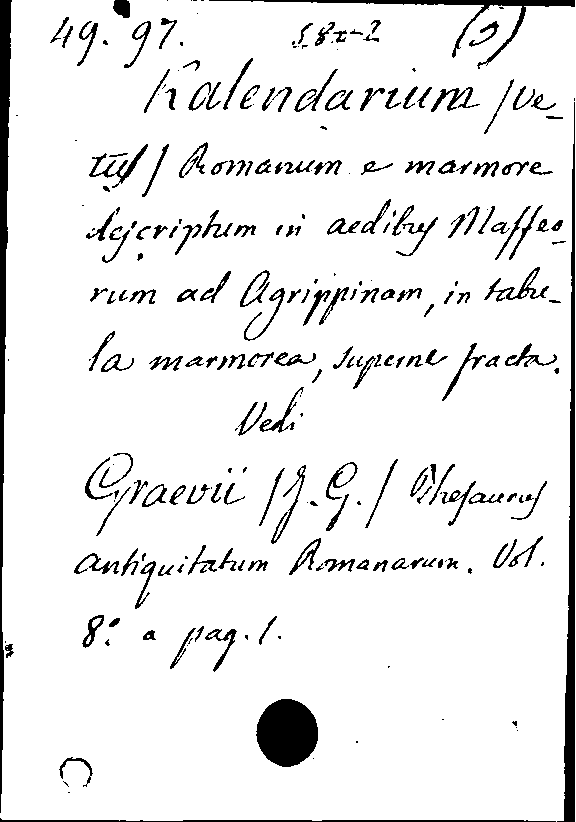 49. 97. (3)
Kalendarium /ve-
tus/ Romanum e marmore
descriptum in aedibus Maffeo-
rum ad Agrippinam, in tabu-
la marmorea, superne fracta.
Vedi
Graevii /J. G./ Thesaurus
antiquitatum Romanarum. Vol.
8.º a pag. 1.